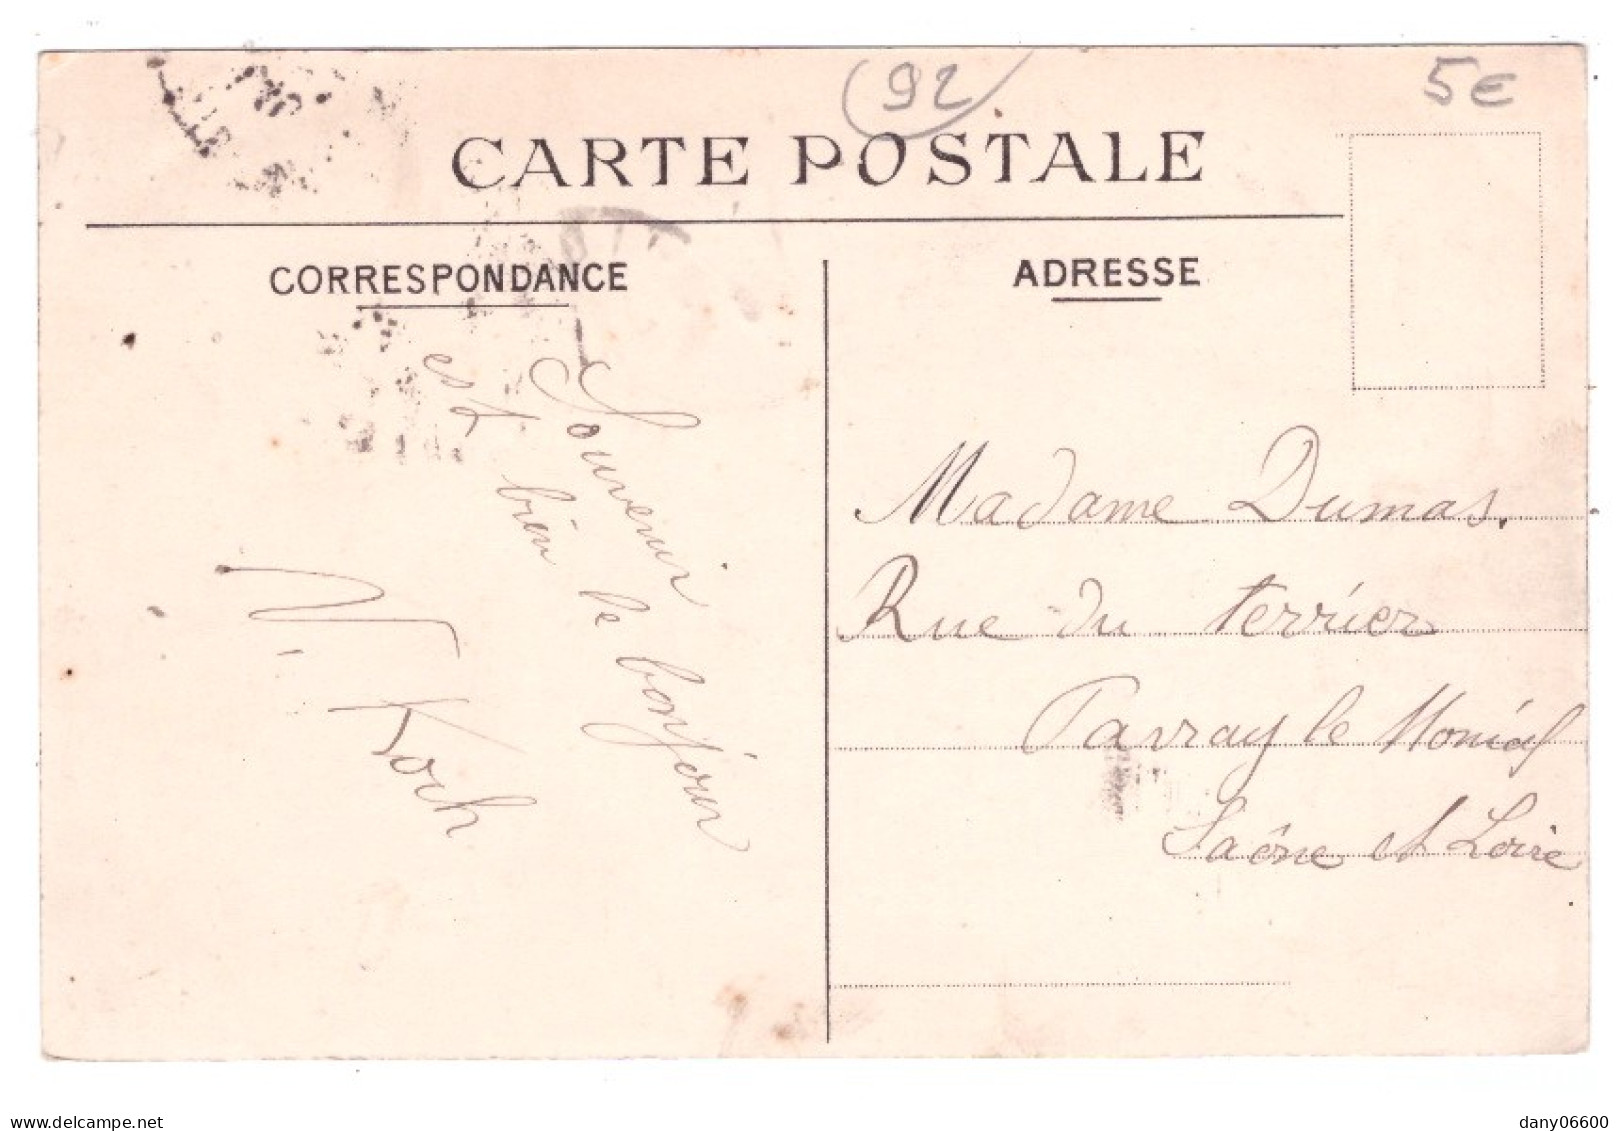 92
5€
CARTE POSTALE
CORRESPONDANCE
ADRESSE
Souvenir
et bien le bonjour
V. Koch
Madame Dumas.
Rue du Terrier
Parray le Monial
Saône et Loire
www.delcampe.net
dany06600